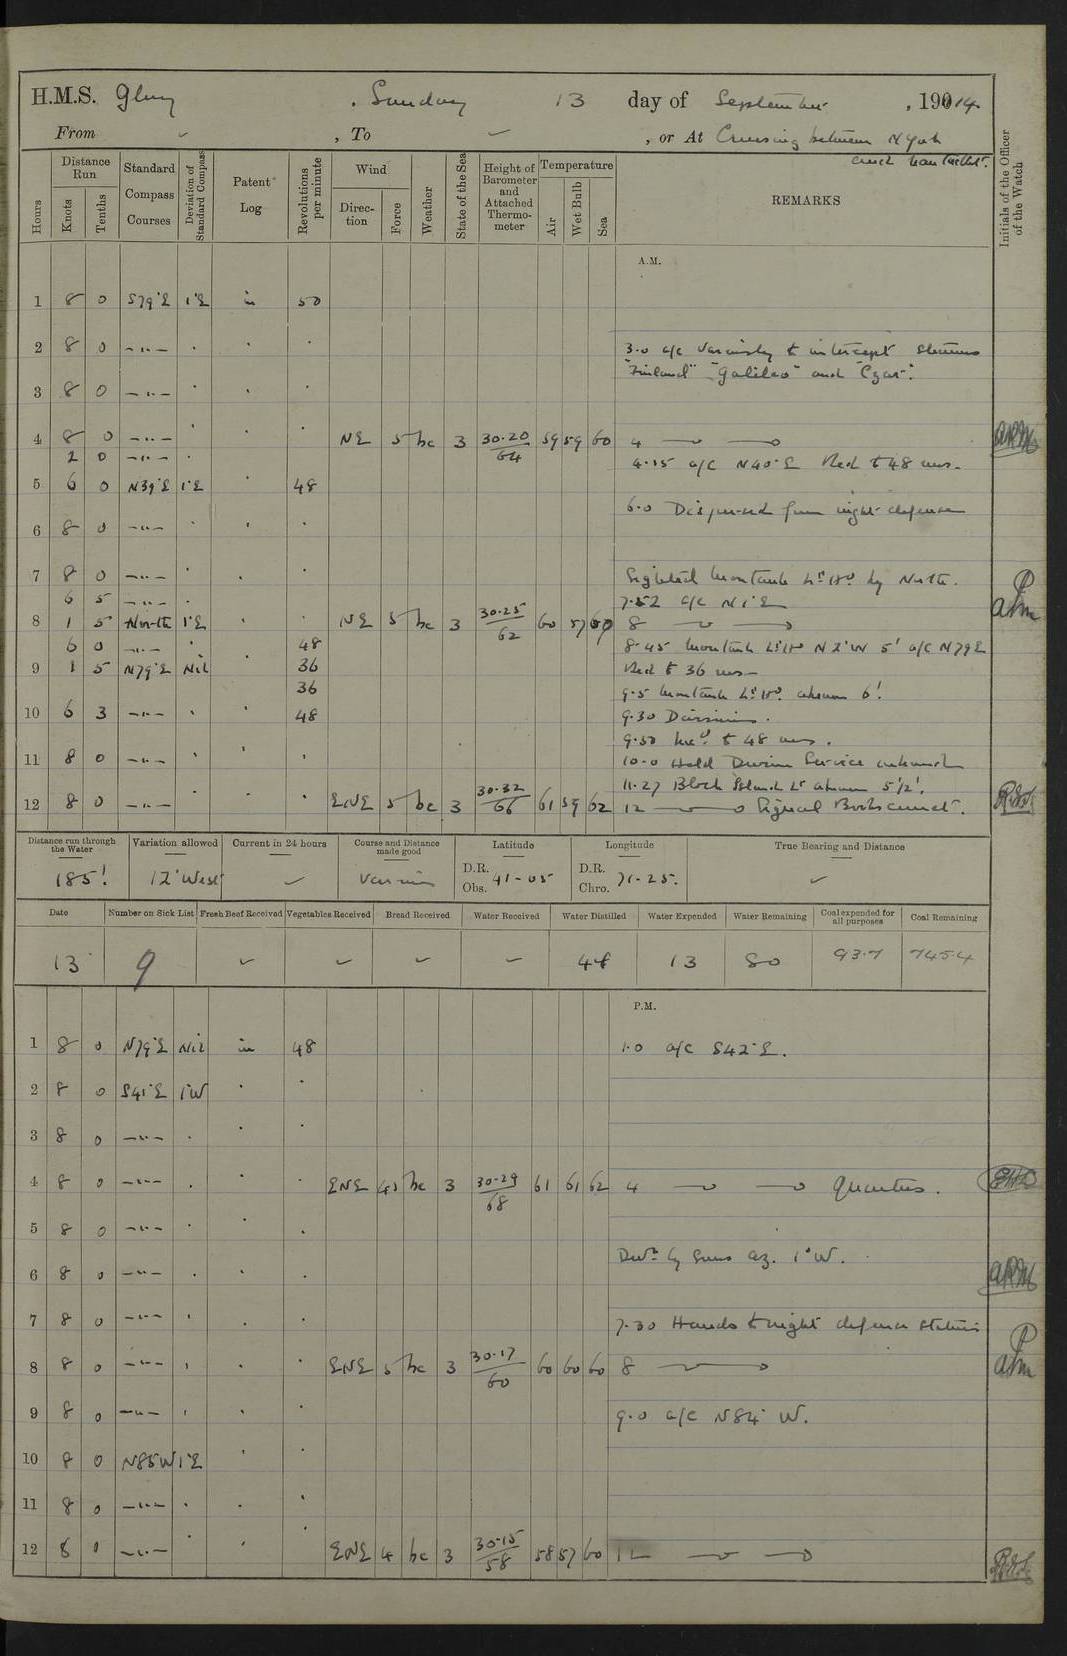 H.M.S. Glory , Sunday 13 day of September , 19014
From ✓ , To ✓ , or At Cruising between N York
and Nantucket.
Hours
Distance Run
Knots
Tenths
Standard Compass Courses
Deviation of Standard Compass
Patent Log
Revolutions per minute
Wind
Direction
Force
Weather
State of the Sea
Height of Barometer and Attached Thermometer
Temperature
Air
Wet Bulb
Sea
REMARKS
Initials of the Officer of the Watch
A.M.
1 8 0 S79°E 1°E in 50
2 8 0 —"— 3.0 a/c variously to intercept steamers
"Finland" "Galileo" and "Czar".
3 8 0 —"—
4 8 0 —"— NE 5 bc 3 30.20/64 59 59 60 4
2 0 —"— 4.15 a/c N40°E Red to 48 revs.
5 6 0 N39°E 1°E 48
6.0 Dispersed from night defence
6 8 0 —"—
7 8 0 —"— Sighted Montauk Lt Ho by North.
6 5 —"— 7.52 a/c N1°E
8 1 5 North 1°E NE 5 bc 3 30.25/62 60 57 59 8
6 0 —"— 48 8.45 Montauk Lt Ho N2°W 5' a/c N79E
9 1 5 N79°E Nil 36 Red to 36 revs
36 9.5 Montauk Lt Ho abeam 6'.
10 6 3 —"— 48 9.30 Divisions.
9.50 Incd to 48 revs.
11 8 0 —"— 10.0 Held Divine Service
11.27 Block Island Lt abeam 5½'.
12 8 0 —"— ENE 5 bc 3 30.32/66 61 59 62 12 Signal Books
Distance run through the Water
Variation allowed
Current in 24 hours
Course and Distance made good
Latitude
Longitude
True Bearing and Distance
185! 12°West ✓ Various D.R. Obs. 41-05 D.R. Chro. 71-25. ✓
Date
Number on Sick List
Fresh Beef Received
Vegetables Received
Bread Received
Water Received
Water Distilled
Water Expended
Water Remaining
Coal expended for all purposes
Coal Remaining
13 9 ✓ ✓ ✓ ✓ 13 80 93.7 745.4
P.M.
1 8 0 N79°E Nil in 48 1.0 a/c S42°E.
2 8 0 S41°E 1°W
3 8 0 —"—
4 8 0 —"— ENE 4.5 bc 3 30.29/68 61 61 62 4 Quarters.
5 8 0 —"—
Devn by Suns az. 1°W.
6 8 0 —"—
7 8 0 —"— 7.30 Hands to night defence stations
8 8 0 —"— ENE 5 bc 3 30.17/60 60 60 60 8
9 8 0 —"— 9.0 a/c N84°W.
10 8 0 N85W 1°E
11 8 0 —"—
12 8 0 —"— ENE 4 bc 3 30.15/58 58 57 60 12